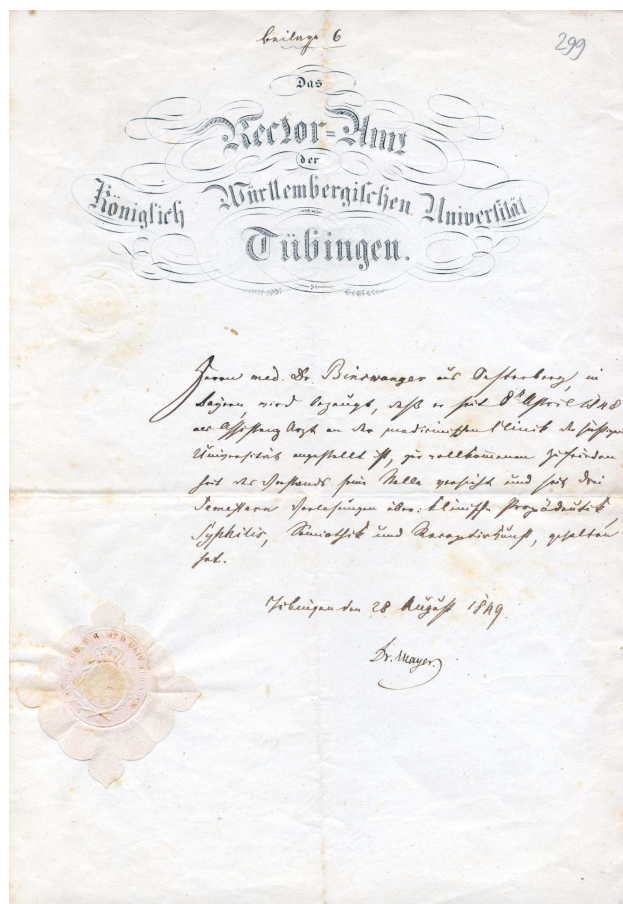 Beilage 6
299
Das
Rector=Amt
der
Königlich Württembergischen Universität
Tübingen.
Herrn med. Dr. Binswanger aus Osterberg, in
Bayern, wird bezeugt, daß er seit 8t April 1848
als Assistenz Arzt an der medicinischen Klinik der hiesigen
Universität angestellt ist, zur vollkommenen Zufrieden
heit des Vorstands seine Stelle versieht und seit drei
Semestern Vorlesungen über: klinische Propädeutik,
Syphilis, Semiothik und Receptirkunst, gehalten
hat.
Tübingen den 28 August 1849.
Dr. Mayer.